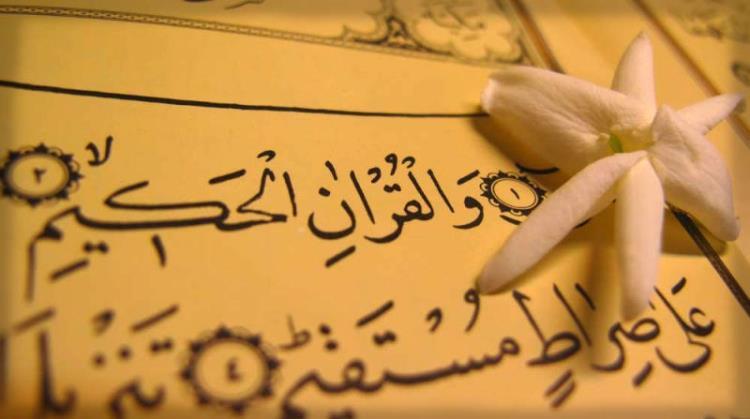 ۱ وَالْقُرْاٰنِ الْحَكٖيمِ ۙ ۲
عَلٰى صِرَاطٍ مُسْتَقٖيمٍ ؕ ٤ تَنْزٖيلَ